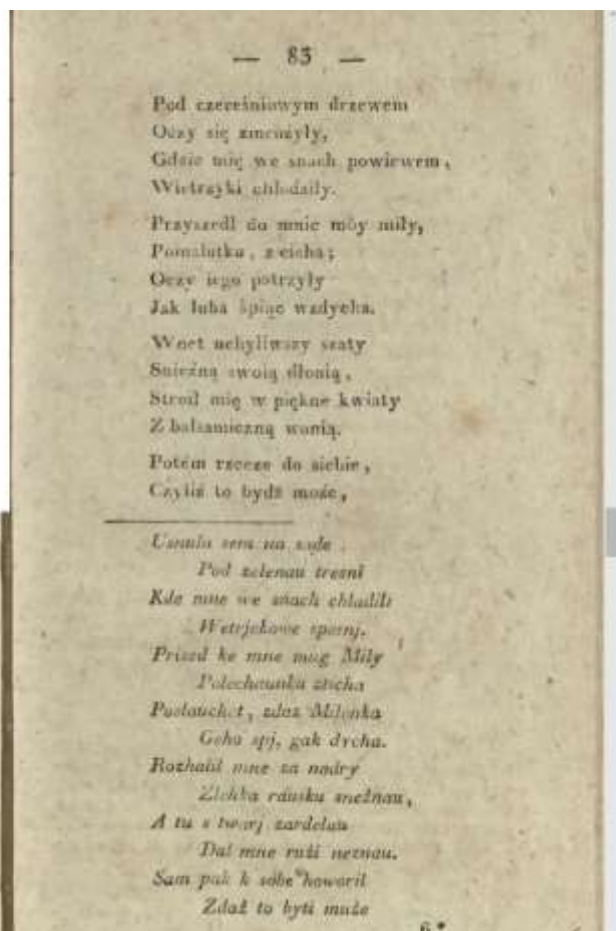 — 83 —
Pod czereśniowym drzewem
Oczy się zmrużyły,
Gdzie mię we snach powiewem,
Wietrzyki chłodziły.
Przyszedł do mnie móy miły,
Pomalutku, z cicha;
Oczy iego patrzyły
Jak luba śpiąc wzdycha.
Wnet uchyliwszy szaty
Snieżną swoią dłonią,
Stroił mię w piękne kwiaty
Z balsamiczną wonią.
Potém rzecze do siebie,
Czyliż to bydź może,
Usnula sem na
Pod zelenau tresni
Kde mne we snach chladili
Wetrjckowe
Prised ke mne mug Mily
Polechaunku zticha
Poslauchat, zdaz Milenka
Geho spj, gak dycha.
Rozhalil mne za nadry
Zlehka rausku sneżnau,
A tu s twarj zardelau
Dal mne ruži neznau.
Sam pak k sobe howoril
Zdaž to byti muže
6*